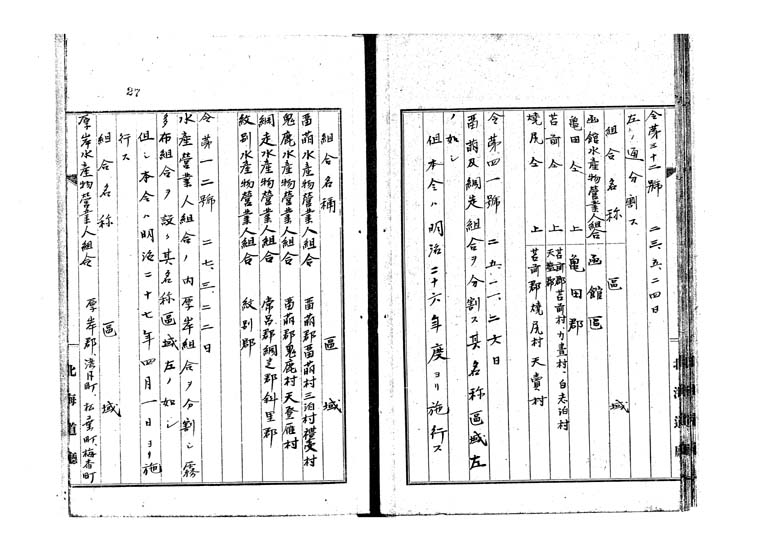 令第三十二號 二三、五、二四日
左ノ通分割ス
組合名称 區域
函館水産物營業人組合 函館區
亀田仝上 亀田郡
苫前仝上 苫前郡苫前村、力晝村、白志泊村
天塩郡
燒尻仝上 苫前郡燒尻村天賣村
令第四一號 二五、一二、二六日
畄萌及網走組合ヲ分割ス其名称區域左
ノ如シ
但本令ハ明治二十六年度ヨリ施行ス
27
組合名稱 區域
畄萌水産物營業人組合 畄萌郡畄萌村三泊村禮受村
鬼鹿水産物營業人組合 畄萌郡鬼鹿村天登雁村
網走水産物營業人組合 常呂郡網走郡斜里郡
紋別水産物營業人組合 紋別郡
令第一二號 二七、三、二二日
水産營業人組合ノ内厚岸組合ヲ分割シ霧
多布組合ヲ設ケ其名称區域左ノ如シ
但シ本令ハ明治二十七年四月一日ヨリ施
行ス
組合名称 區域
厚岸水産物營業人組合 厚岸郡湾月町、松葉町梅香町
北海道廳
北海道廳